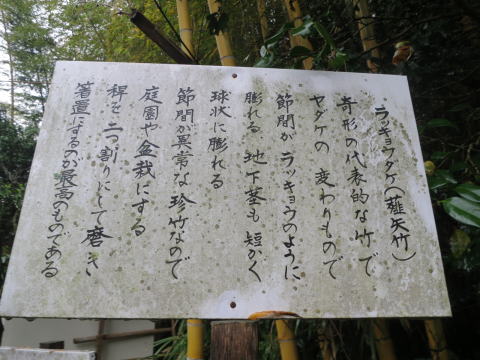 ラッキョウダケ(薤矢竹)
奇形の代表的な竹で
ヤダケの変わりもので
節間がラッキョウのように
膨れる 地下茎も短かく
球状に膨れる
節間が異常な珍竹なので
庭園や盆栽にする
稈を二つ割りにして磨き
箸置にするのが最高のものである